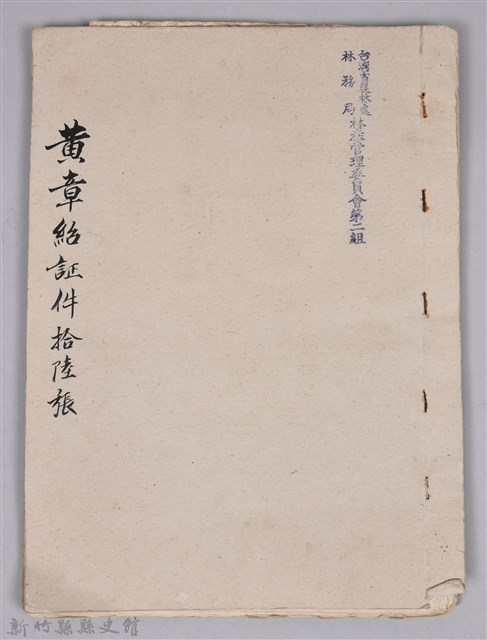 台灣省農林處
林務局林產管理委員會第二組
黃章紹証件拾陸張
新竹縣縣史館